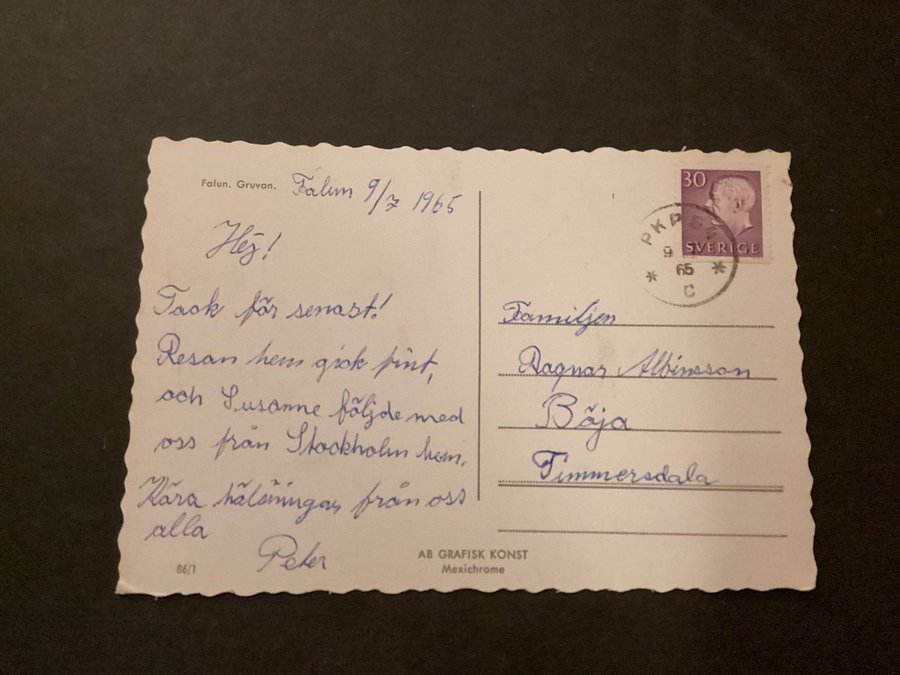 Falun. Gruvan.
Falun 9/7 1965
Hej!
Tack för senast!
Resan hem gick fint,
och Susanne följde med
oss från Stockholm hem.
Kära hälsningar från oss
alla
Peter
86/1
AB GRAFISK KONST
Mexichrome
30
SVERIGE
PKP
9
65
C
Familjen
Ragnar Albinsson
Böja
Timmersdala